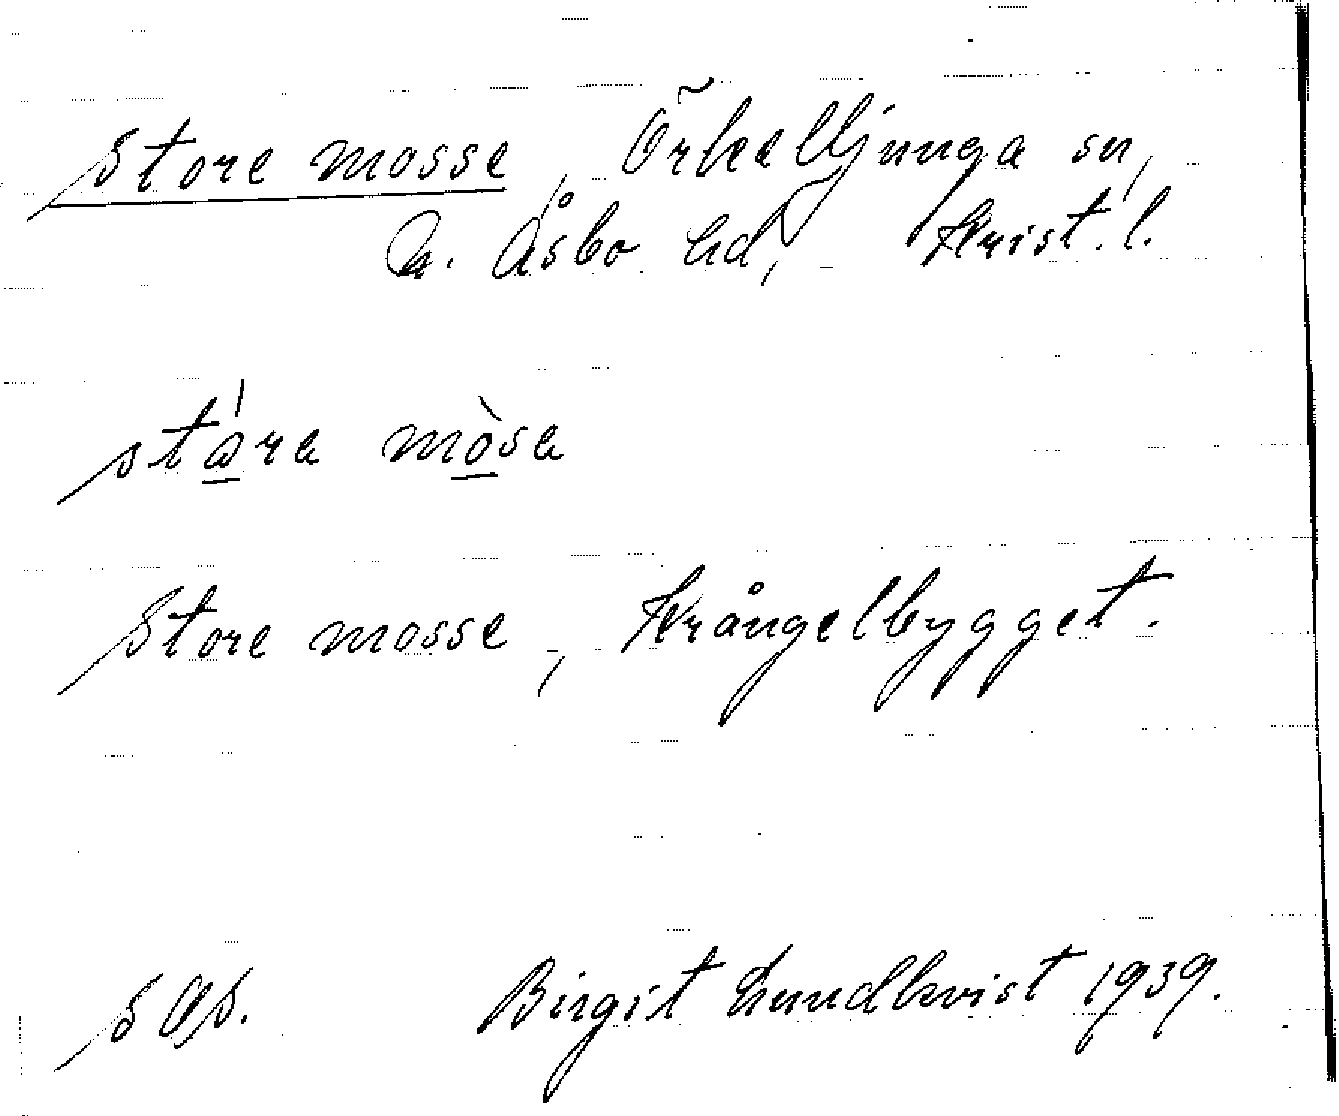 Store mosse, Örkelljunga sn,
N. Åsbo hd, Krist. l.
stǻ̱ra mò̱sa
Store mosse, Krångelbygget.
SOS. Birgit Lundkvist 1939.